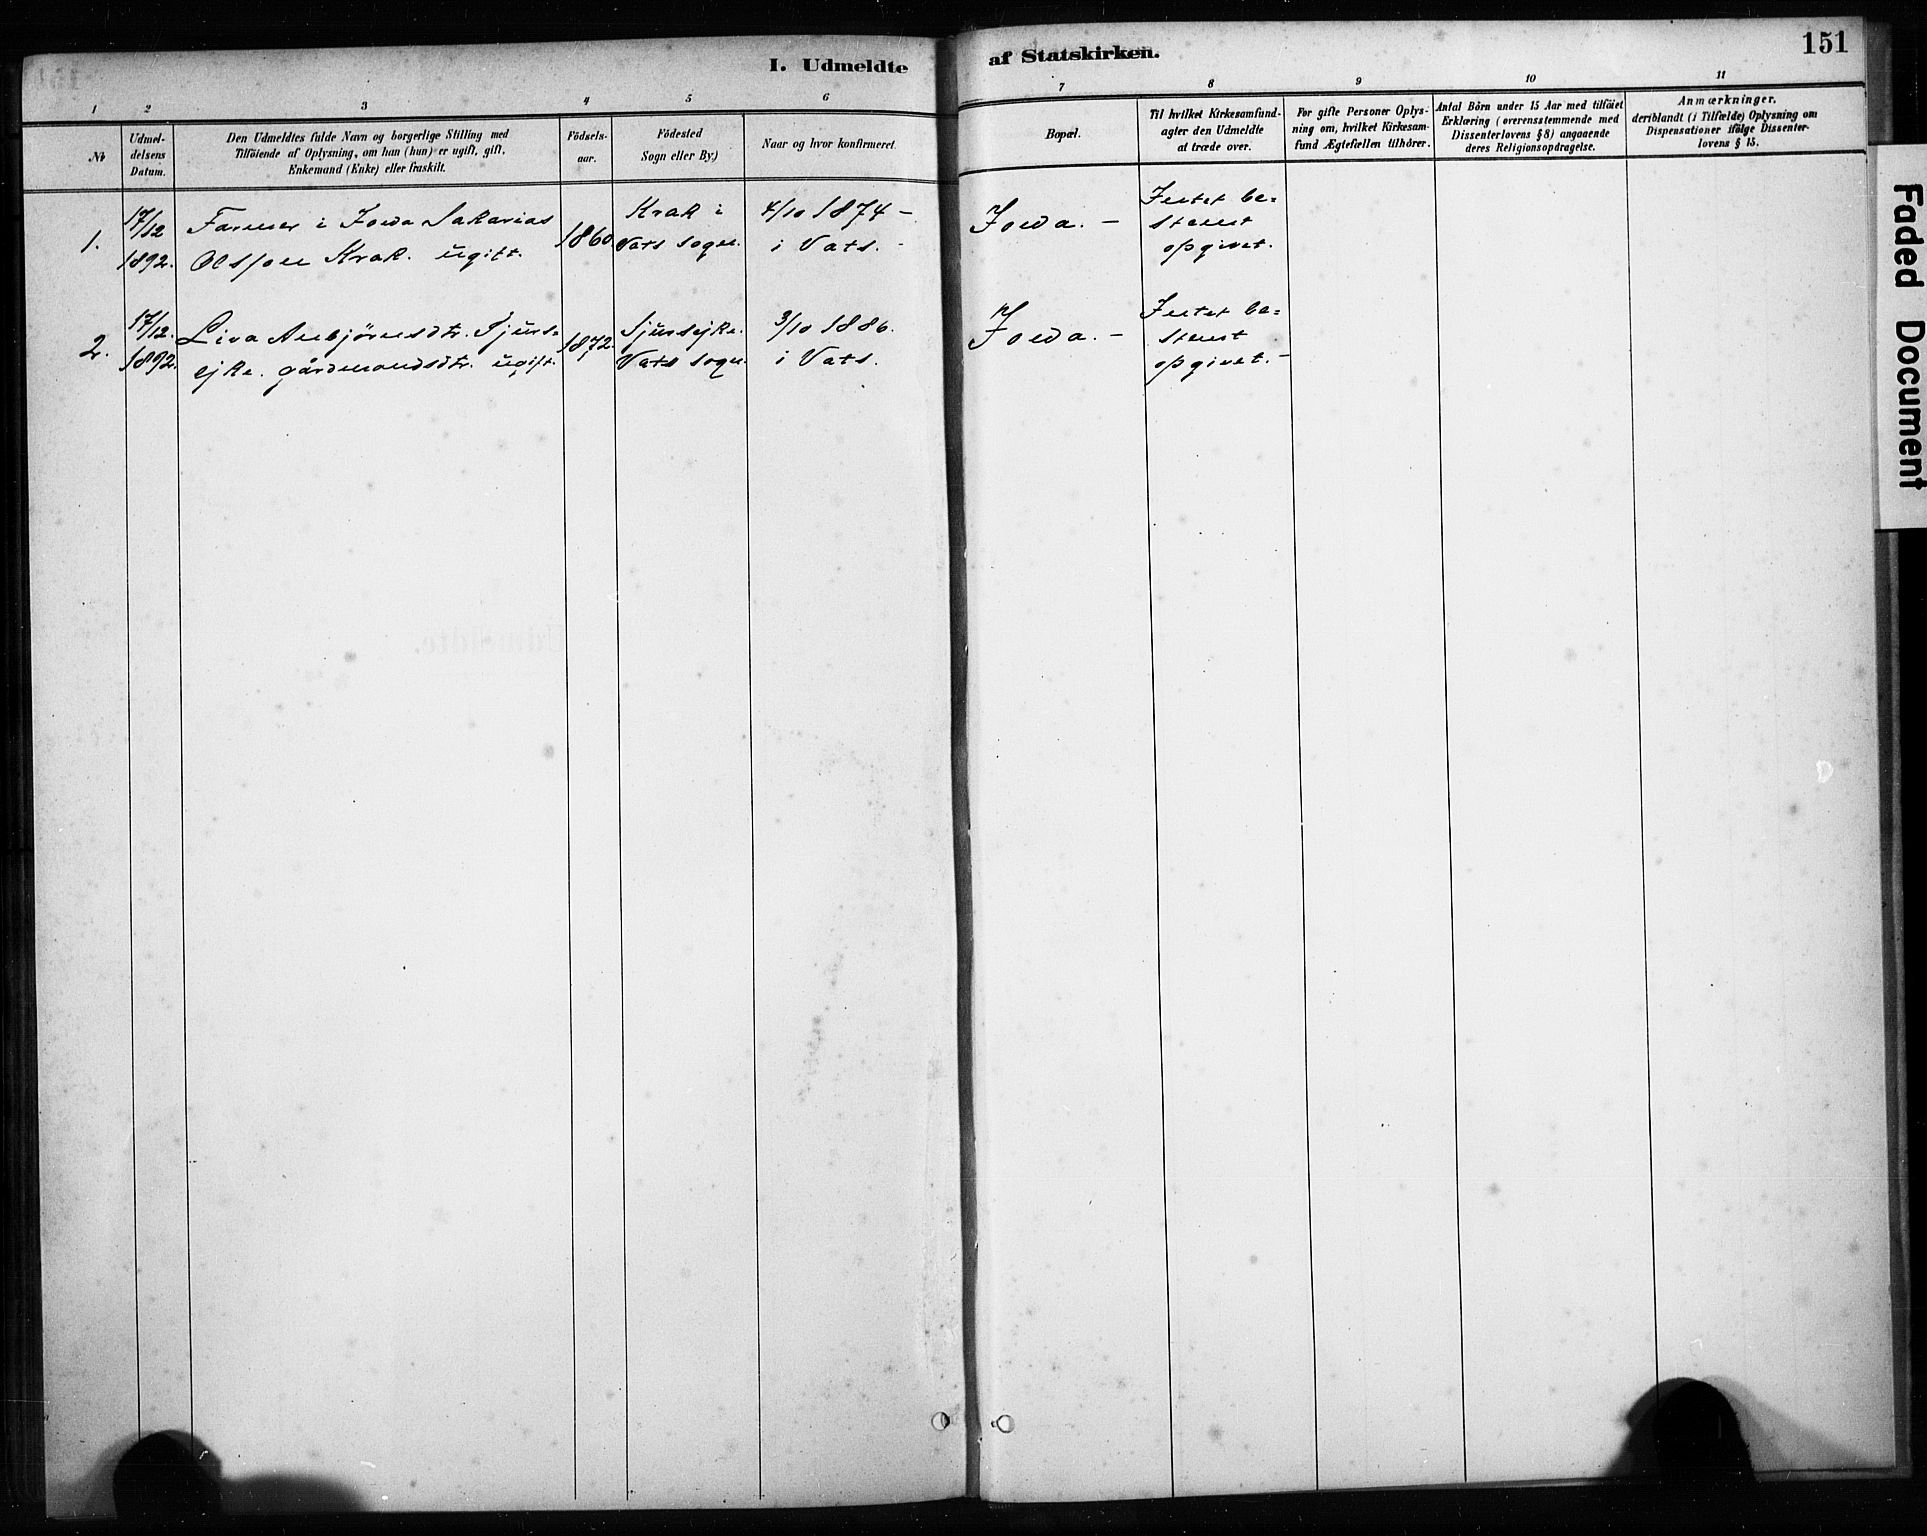 I. Udmeldte af Statskirken.
151
1 2 3 4 5 6 7 8 9 10 11
№
Udmel-
delsens
Datum.
Den Udmeldtes fulde Navn og borgerlige Stilling med
Tilföiende af Oplysning, om han (hun) er ugift, gift,
Enkemand (Enke) eller fraskilt.
Födsels-
aar.
Födested
Sogn eller By.)
Naar og hvor konfirmeret.
Bopæl.
Til hvilket Kirkesamfund
agter den Udmeldte
at træde over.
For gifte Personer Oplys-
ning om, hvilket Kirkesam-
fund Ægtefællen tilhörer.
Antal Börn under 15 Aar med tilföiet
Erklæring (overensstemmende med
Dissenterlovens § 8) angaaende
deres Religionsopdragelse.
Anmærkninger,
deriblandt (i Tilfælde) Oplysning om
Dispensationer ifölge Dissenter-
lovens § 15.
1.
17/12
1892.
Farmer i Iowa Sakarias
Olsson Krak. ugift.
1860
Krak i
Vats sogn.
4/10 1874 –
i Vats. –
Iowa. –
Intet be=
stemt
opgivet.
2.
17/12.
1892.
Liva Anbjörnsdtr. Sjurs=
ejke. gårdmandsdtr. ugift.
1872.
Sjursejke.
Vats sogn.
3/10 1886.
i Vats.
Iowa. –
Intet be=
stemt
opgivet. –
Faded Document